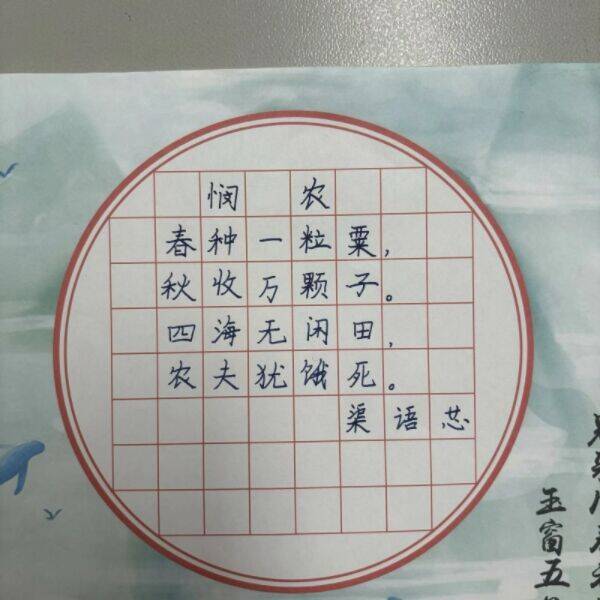 悯农
春种一粒粟，
秋收万颗子。
四海无闲田，
农夫犹饿死。
渠语芯
玉窗五